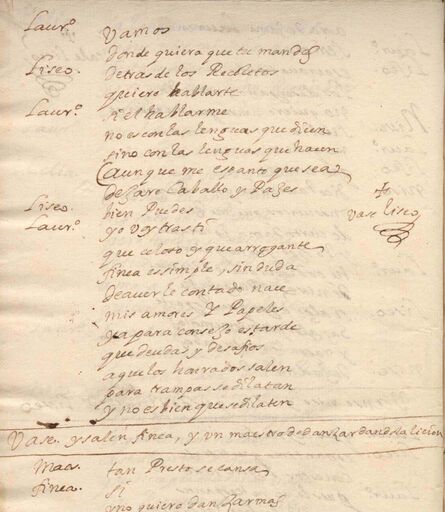 Laurº. Vamos
donde quiera que tu mandes
Liseo. detras de los Recoletos
quiero hablarte
Laurº. si el hablarme
no es con las lenguas que dicen
sino con las lenguas que hacen
aunque me espanto que sea
dejare Caballo y Pages
Liseo. bien Puedes
Laurº. yo voy tras ti
vase liseo
que celoso y que arrogante
finea es simple, sin duda
de auerle contado nace
mis amores y Papeles
ya para consejo es tarde
que deudas y desafios
a que los honrados salen
para trampas se dilatan
y no es bien que se dilaten
Vase. y salen finea, y Vn maestro de danzar dandola licion
Maes. tan Presto se cansa
finea. si
y no quiero danzar mas